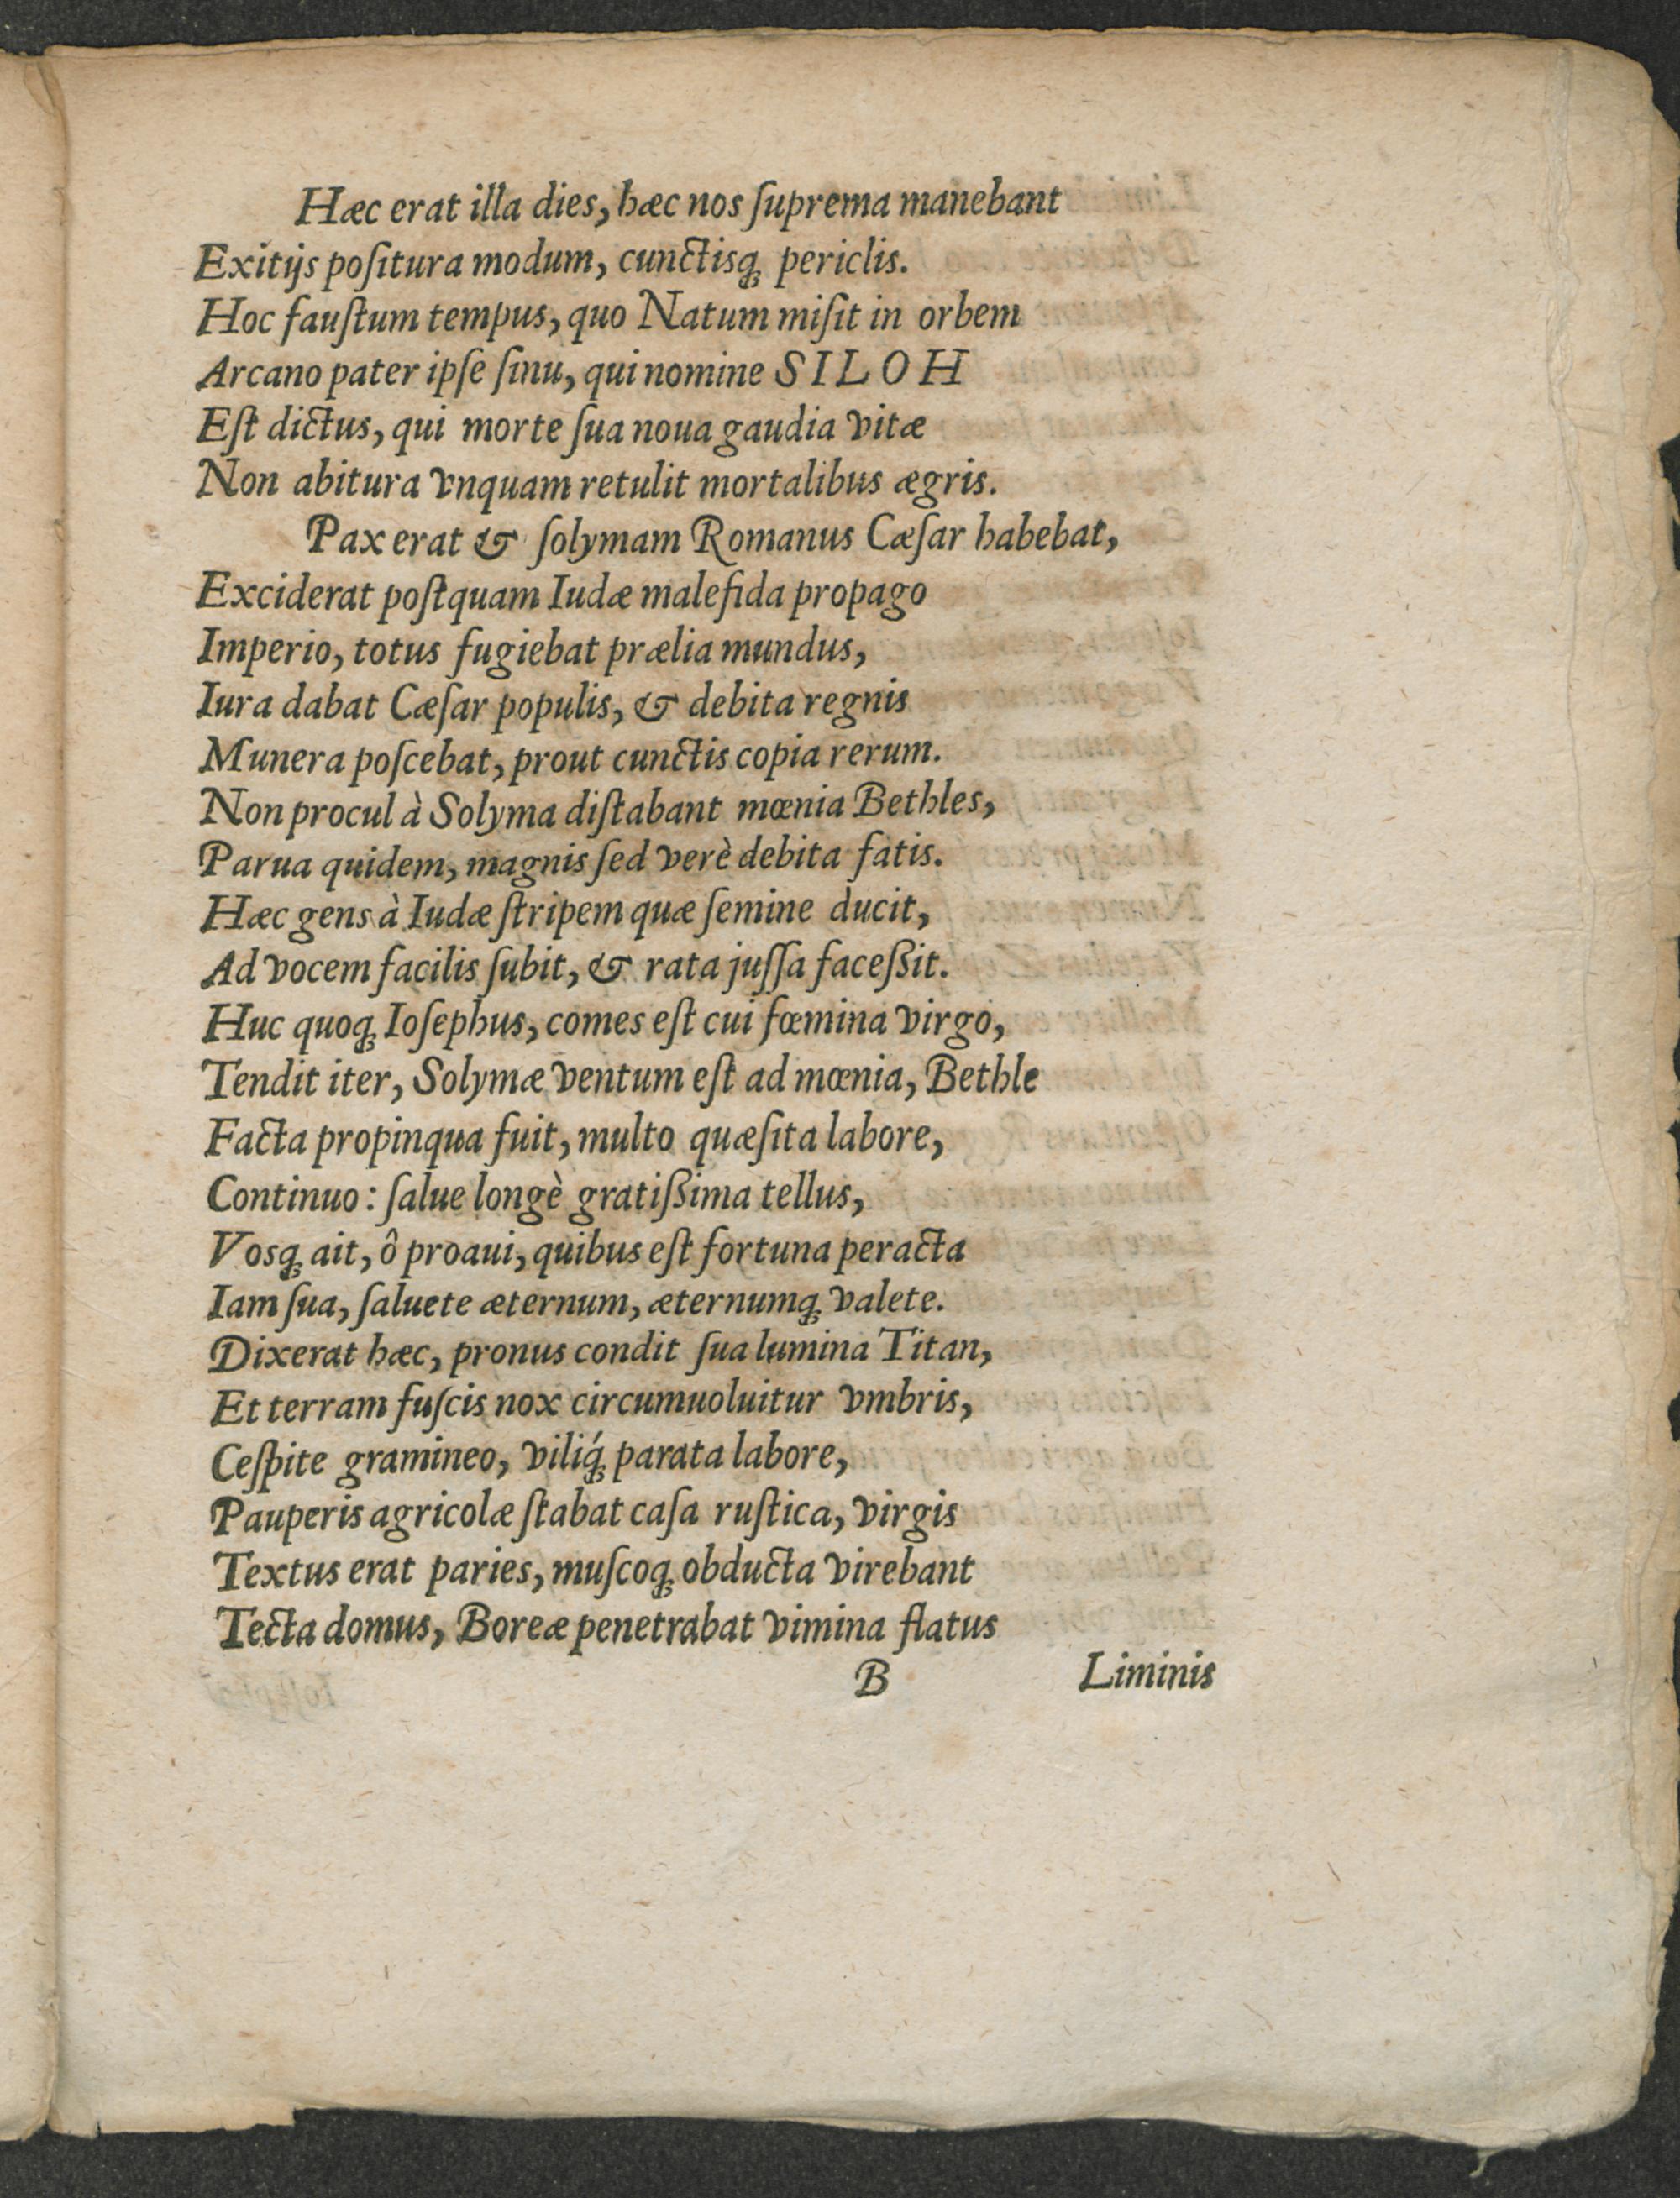 Hæc erat illa dies, hæc nos ſuprema manebant
Exitijs poſitura modum, cunctisq́ꝫ periclis.
Hoc fauſtum tempus, quo Natum miſit in orbem
Arcano pater ipſe ſinu, qui nomine SILOH
Eſt dictus, qui morte ſua noua gaudia vitæ
Non abitura vnquam retulit mortalibus ægris.
Pax erat & ſolymam Romanus Cæſar habebat,
Exciderat poſtquam Iudæ malefida propago
Imperio, totus fugiebat prælia mundus,
Iura dabat Cæſar populis, & debita regnis
Munera poſcebat, prout cunctis copia rerum.
Non procul à Solyma diſtabant mœnia Bethles,
Parua quidem, magnis ſed verè debita fatis.
Hæc gens à Iudæ ſtripem quæ ſemine ducit,
Ad vocem facilis ſubit, & rata juſſa faceßit.
Huc quoqꝫ Ioſephus, comes eſt cui fœmina virgo,
Tendit iter, Solymæ ventum eſt ad mœnia, Bethle
Facta propinqua fuit, multo quæſita labore,
Continuo: ſalue longè gratißima tellus,
Vosqꝫ ait, ô proaui, quibus eſt fortuna peracta
Iam ſua, ſaluete æternum, æternumqꝫ valete.
Dixerat hæc, pronus condit ſua lumina Titan,
Et terram fuſcis nox circumuoluitur vmbris,
Ceſpite gramineo, viliq́ꝫ parata labore,
Pauperis agricolæ ſtabat caſa ruſtica, virgis
Textus erat paries, muſcoqꝫ obducta virebant
Tecta domus, Boreæ penetrabat vimina flatus
B Liminis